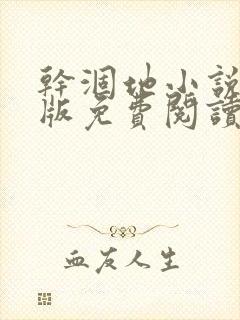 幹涸地小說
版免費閱讀
血友人生